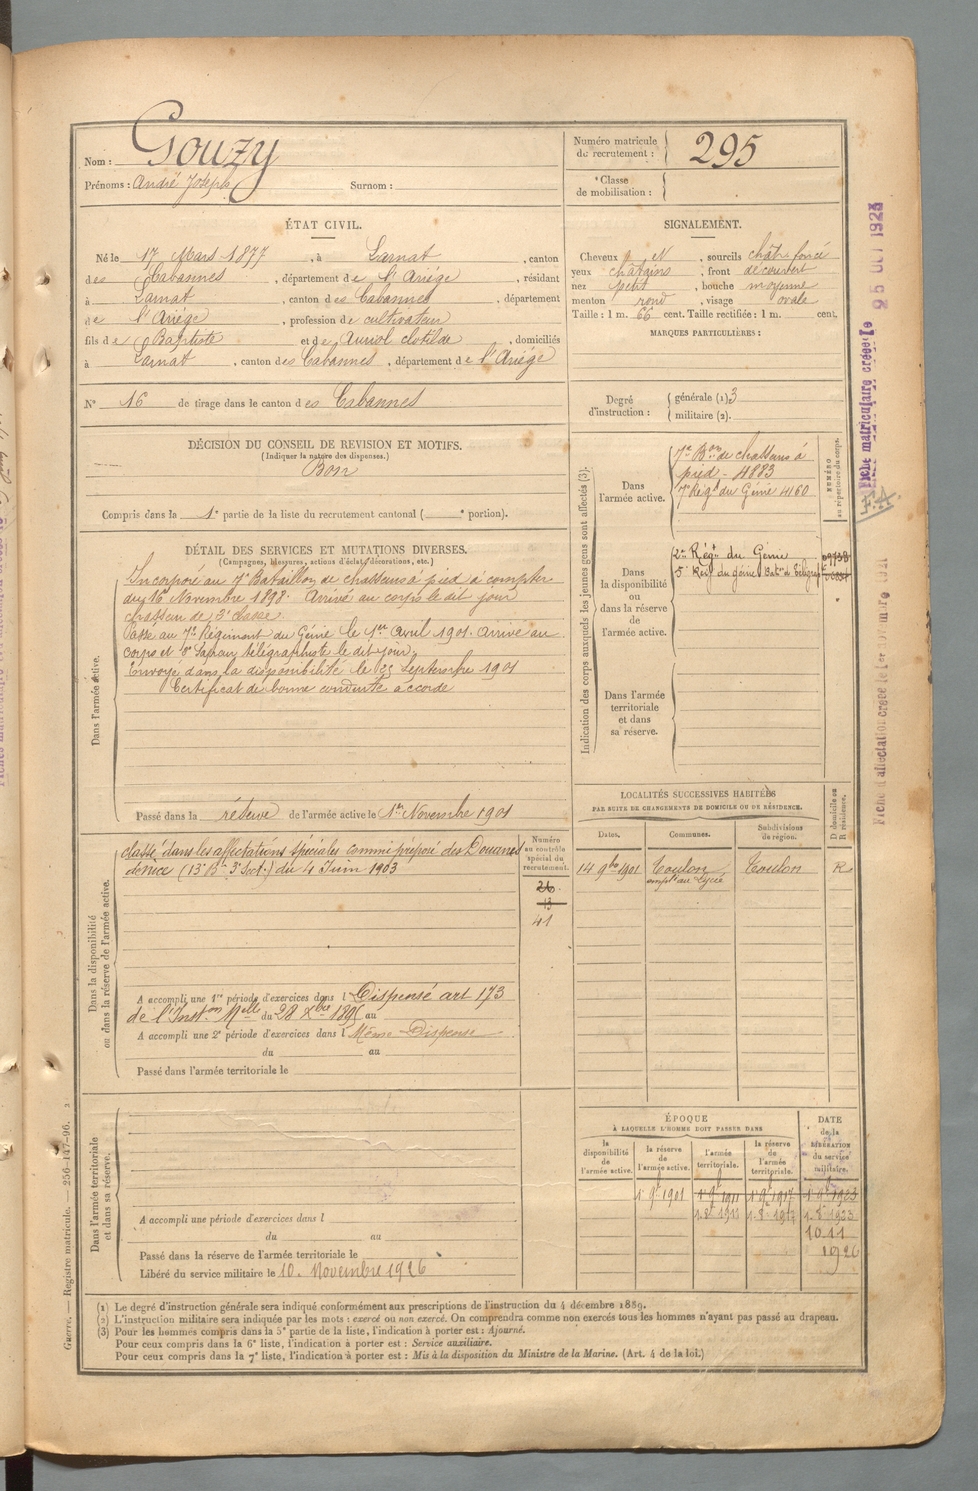 Nom : Gouzy
Prénoms : André Joseph Surnom :
Numéro matricule de recrutement : 295
Classe de mobilisation :
ÉTAT CIVIL.
Né le 17 Mars 1877, à Larnat, canton
des Cabannes, département de l'Ariége, résidant
à Larnat, canton des Cabannes, département
de l'Ariége, profession de cultivateur
fils de Baptiste et de Auriol Clotilde, domiciliés
à Larnat, canton des Cabannes, département de l'Ariége
N° 16 de tirage dans le canton des Cabannes
SIGNALEMENT.
Cheveux et, sourcils chât. foncé
yeux châtains, front découvert
nez petit, bouche moyenne
menton rond, visage ovale
Taille : 1 m. 66 cent. Taille rectifiée : 1 m. cent.
MARQUES PARTICULIÈRES :
Degré d'instruction : générale (1) 3
militaire (2).
DÉCISION DU CONSEIL DE REVISION ET MOTIFS.
(Indiquer la nature des dispenses.)
Bon
Compris dans la 1e partie de la liste du recrutement cantonal ( e portion).
DÉTAIL DES SERVICES ET MUTATIONS DIVERSES.
(Campagnes, blessures, actions d'éclat, décorations, etc.)
Dans l'armée active.
Incorporé au 7e Bataillon de chasseurs à pied à compter
du 16 Novembre 1898. Arrivé au corps le dit jour
chasseur de 2e classe
Passé au 7e Régiment du Génie le 1er Avril 1901. arrivé au
corps et Sapeur télégraphiste le dit jour,
Envoyé dans la disponibilité le Septembre 1901
Certificat de bonne conduite accordé
Passé dans la réserve de l'armée active le 1er Novembre 1901
Indication des corps auxquels les jeunes gens sont affectés (3).
NUMÉRO au répertoire du corps.
Dans l'armée active.
7e Bon de chasseurs à
pied - 4883
7e Régt du Génie 4160
Dans la disponibilité ou dans la réserve de l'armée active.
2e Régt du Génie
5e Régt du génie Baton d Télégrap
Dans l'armée territoriale et dans sa réserve.
Dans la disponibilité ou dans la réserve de l'armée active.
Classé dans les affectations spéciales comme préposé des Douanes
de Nice (13e Bn 3e Sect.) du 4 Juin 1903
Numéro au contrôle spécial du recrutement.
26
13
41
A accompli une 1re période d'exercices dans l Dispensé art 173
de l'Inston Melle du 28 Xbre 1895 au
A accompli une 2e période d'exercices dans l Même Dispense
du au
Passé dans l'armée territoriale le
LOCALITÉS SUCCESSIVES HABITÉES
PAR SUITE DE CHANGEMENTS DE DOMICILE OU DE RÉSIDENCE.
Dates. Communes. Subdivisions de région. D domicile ou R résidence.
14 9bre 1901 Toulon Toulon R
emplé au Lycée
Dans l'armée territoriale et dans sa réserve.
A accompli une période d'exercices dans l
du au
Passé dans la réserve de l'armée territoriale le
Libéré du service militaire le 10. Novembre 1926
ÉPOQUE
À LAQUELLE L'HOMME DOIT PASSER DANS
la disponibilité de l'armée active. la réserve de l'armée active. l'armée territoriale. la réserve de l'armée territoriale.
DATE de la LIBÉRATION du service militaire.
1e 9bre 1901 1e 9bre 1911 1e 9bre 1917 1e 9bre 1923
10 11
1926
(1) Le degré d'instruction générale sera indiqué conformément aux prescriptions de l'instruction du 4 décembre 1889.
(2) L'instruction militaire sera indiquée par les mots : exercé ou non exercé. On comprendra comme non exercés tous les hommes n'ayant pas passé au drapeau.
(3) Pour les hommes compris dans la 5e partie de la liste, l'indication à porter est : Ajourné.
Pour ceux compris dans la 6e liste, l'indication à porter est : Service auxiliaire.
Pour ceux compris dans la 7e liste, l'indication à porter est : Mis à la disposition du Ministre de la Marine. (Art. 4 de la loi.)
Guerre. — Registre matricule. — 256-147-96.
Fiche matriculaire créée le 25 OCT 1923
F.A.
Fiche d'affectation créée le 1er novembre